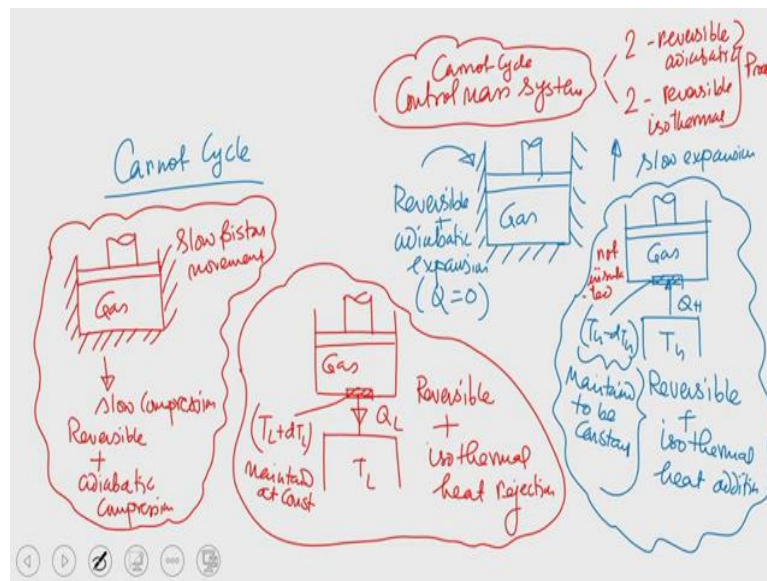 Carnot Cycle
Control mass System
2 - reversible
adiabatic
2 - reversible
isothermal
Carnot Cycle
Slow Piston
movement
Gas
slow Compression
Reversible
+
adiabatic
Compression
Gas
QL
(TL+dTL)
maintained
at Const
TL
Reversible
+
isothermal
heat rejection
Reversible
+
adiabatic
expansion
(Q=0)
Gas
slow expansion
Gas
not
insula
-ted
QH
(TH-dTH)
TH
Maintained
to be
Constant
Reversible
+
isothermal
heat addition